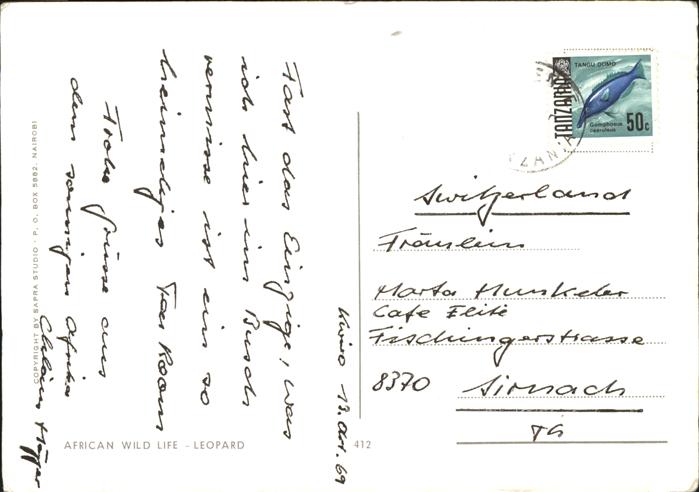 Kwiro 13. Okt. 69
Fast das Einzige, was
ich hier im Busch
vermisse ist ein so
heimeliges Tea Room
Frohe Grüsse aus
dem sonnigen Afrika
TANZANIA
TANGU DOMO
Gomphosus
caeruleus
50c
ZAN
Switzerland
Fräulein
Marta Hunkeler
Cafe Elite
Fischingerstrasse
8370 Sirnach
TG
AFRICAN WILD LIFE - LEOPARD
412
COPYRIGHT BY SAPRA STUDIO · P. O. BOX 5882, NAIROBI